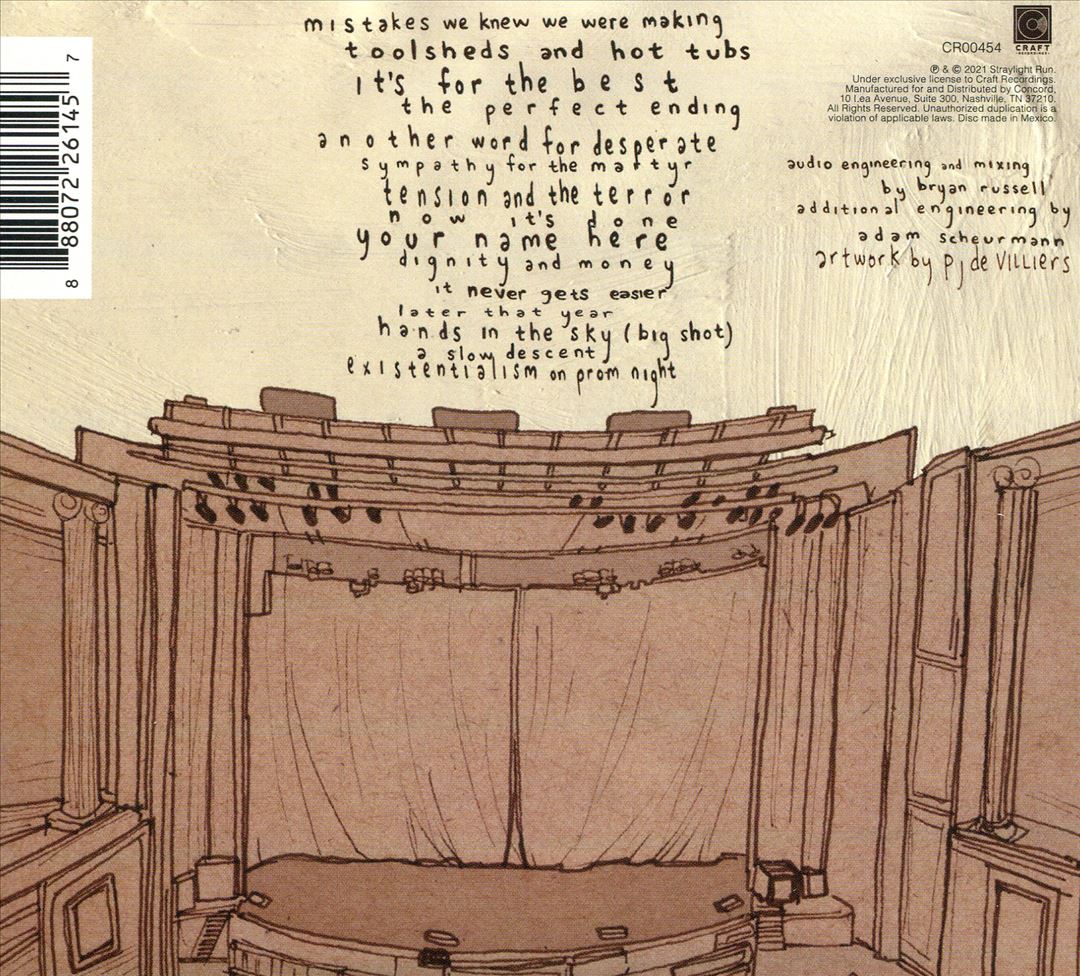 mistakes we knew we were making
toolsheds and hot tubs
it's for the best
the perfect ending
another word for desperate
sympathy for the martyr
tension and the terror
now it's done
your name here
dignity and money
it never gets easier
later that year
hands in the sky (big shot)
a slow descent
existentialism on prom night
CR00454
CRAFT
RECORDINGS
℗ & © 2021 Straylight Run.
Under exclusive license to Craft Recordings.
Manufactured for and Distributed by Concord,
10 Lea Avenue, Suite 300, Nashville, TN 37210.
All Rights Reserved. Unauthorized duplication is a
violation of applicable laws. Disc made in Mexico.
audio engineering and mixing
by bryan russell
additional engineering by
adam scheurmann
artwork by Pj de VILLIERS
8 88072 26145 7